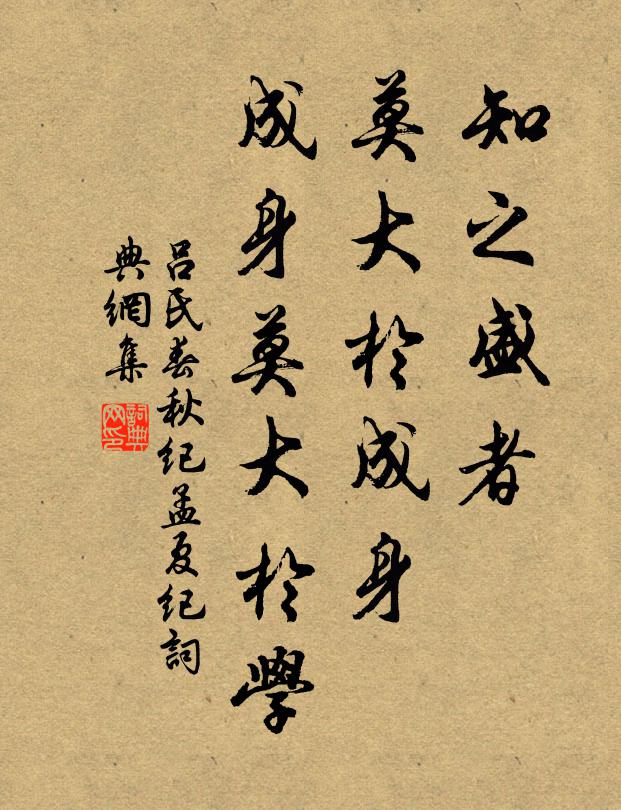 知之盛者
莫大於成身
成身莫大於學
呂氏春秋紀孟夏紀詞
典網集
詞典
网印